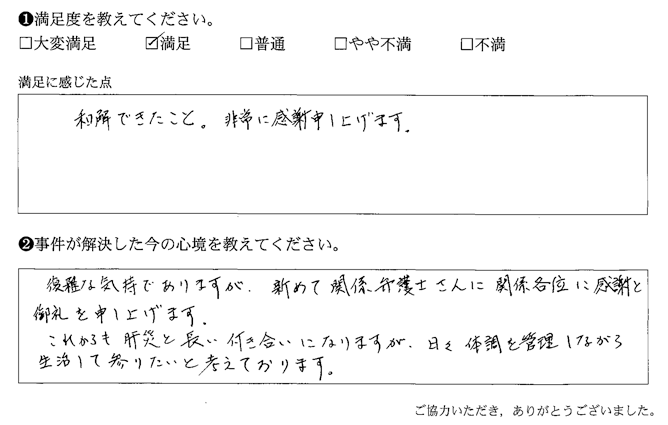 ❶満足度を教えてください。
□大変満足 ☑満足 □普通 □やや不満 □不満
満足に感じた点
和解できたこと。非常に感謝申し上げます。
❷事件が解決した今の心境を教えてください。
復雑な気持でありますが、新めて関係弁護士さんに関係各位に感謝と
御礼を申し上げます。
これからも肝炎と長い付き合いになりますが、日々体調を管理しながら
生活して参りたいと考えております。
ご協力いただき，ありがとうございました。